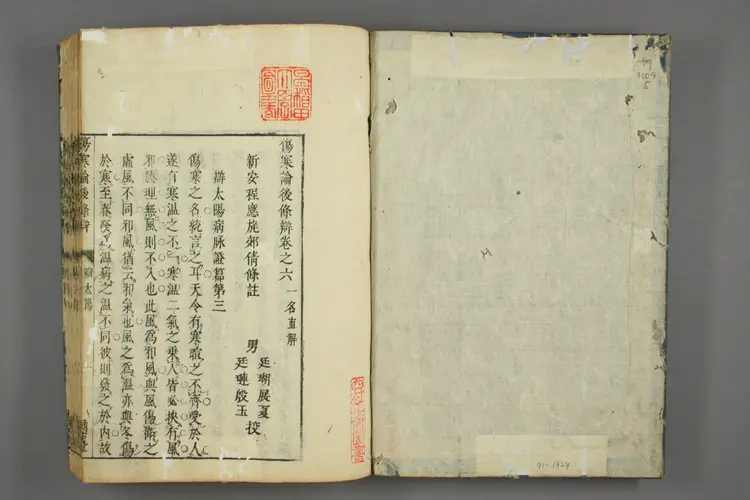 傷寒論後條辯卷之六
一名直解
新安程應旄郊倩條註
男
廷瑚展夏
廷璉殷玉
挍
辯太陽病脉證篇第三
傷寒之名統言之耳天令有寒暄之不齊受於人
遂有寒温之不一寒温二氣之乗人皆必挾有風
邪腠理無風則不入也此風為邪風與風傷衛之
虛風不同邪風猶云邪氣也風之為温亦與冬傷
於寒至春發為温病之温不同彼則發之於内故
傷寒論後條辯
辯太陽
早稲田
91-1924